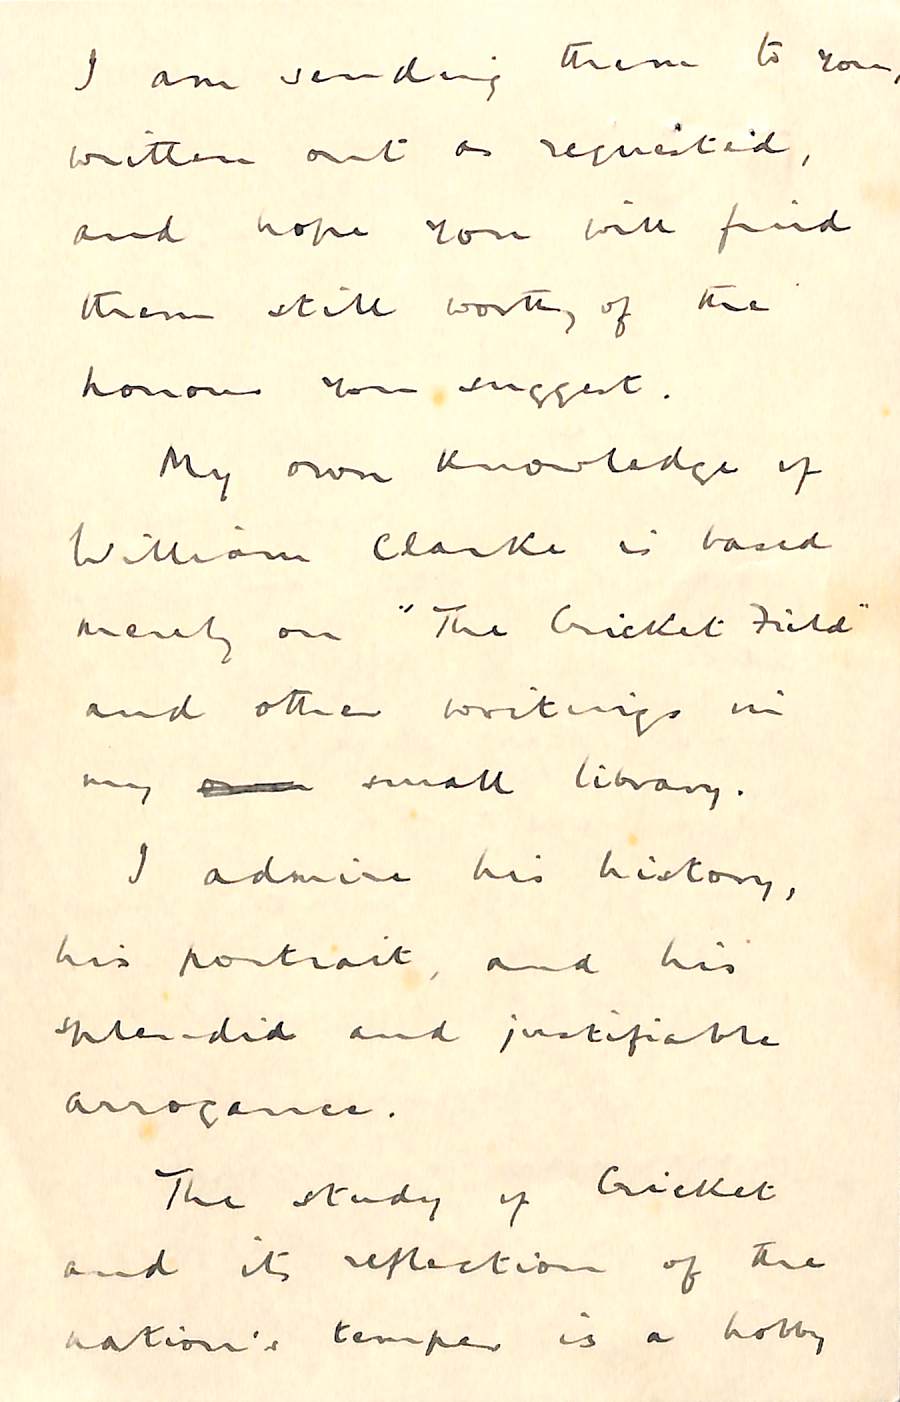 I am sending them to you,
written out as requested,
and hope you will find
them still worthy of the
honour you suggest.
My own knowledge of
William Clarke is based
merely on "The Cricket Field"
and other writings in
my small library.
I admire his history,
his portrait, and his
splendid and justifiable
arrogance.
The study of Cricket
and its reflection of the
nation's temper is a hobby